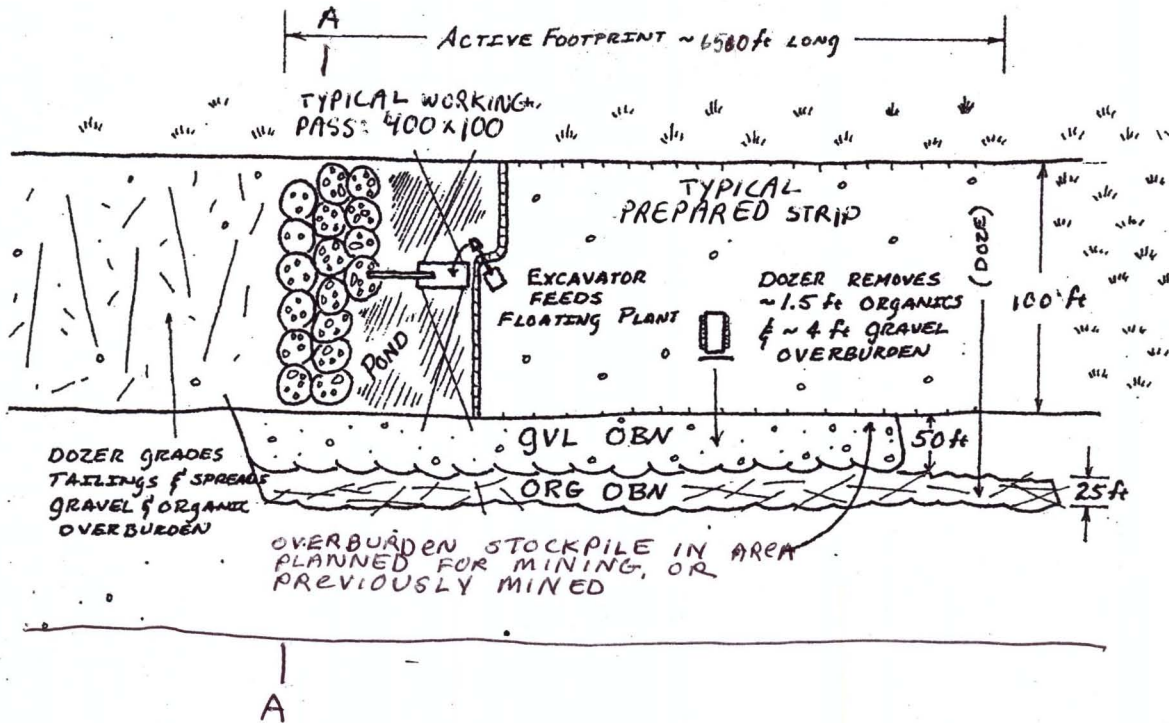 A
ACTIVE FOOTPRINT ~ ft LONG
TYPICAL WORKING
PASS: 400 x 100
TYPICAL
PREPARED STRIP
(DOZE)
100 ft
EXCAVATOR
FEEDS
FLOATING PLANT
DOZER REMOVES
~1.5 ft ORGANICS
& ~ 4 ft GRAVEL
OVERBURDEN
POND
GVL OBN
50 ft
ORG OBN
25 ft
DOZER GRADES
TAILINGS & SPREADS
GRAVEL & ORGANIC
OVERBURDEN
OVERBURDEN STOCKPILE IN AREA
PLANNED FOR MINING, OR
PREVIOUSLY MINED
A